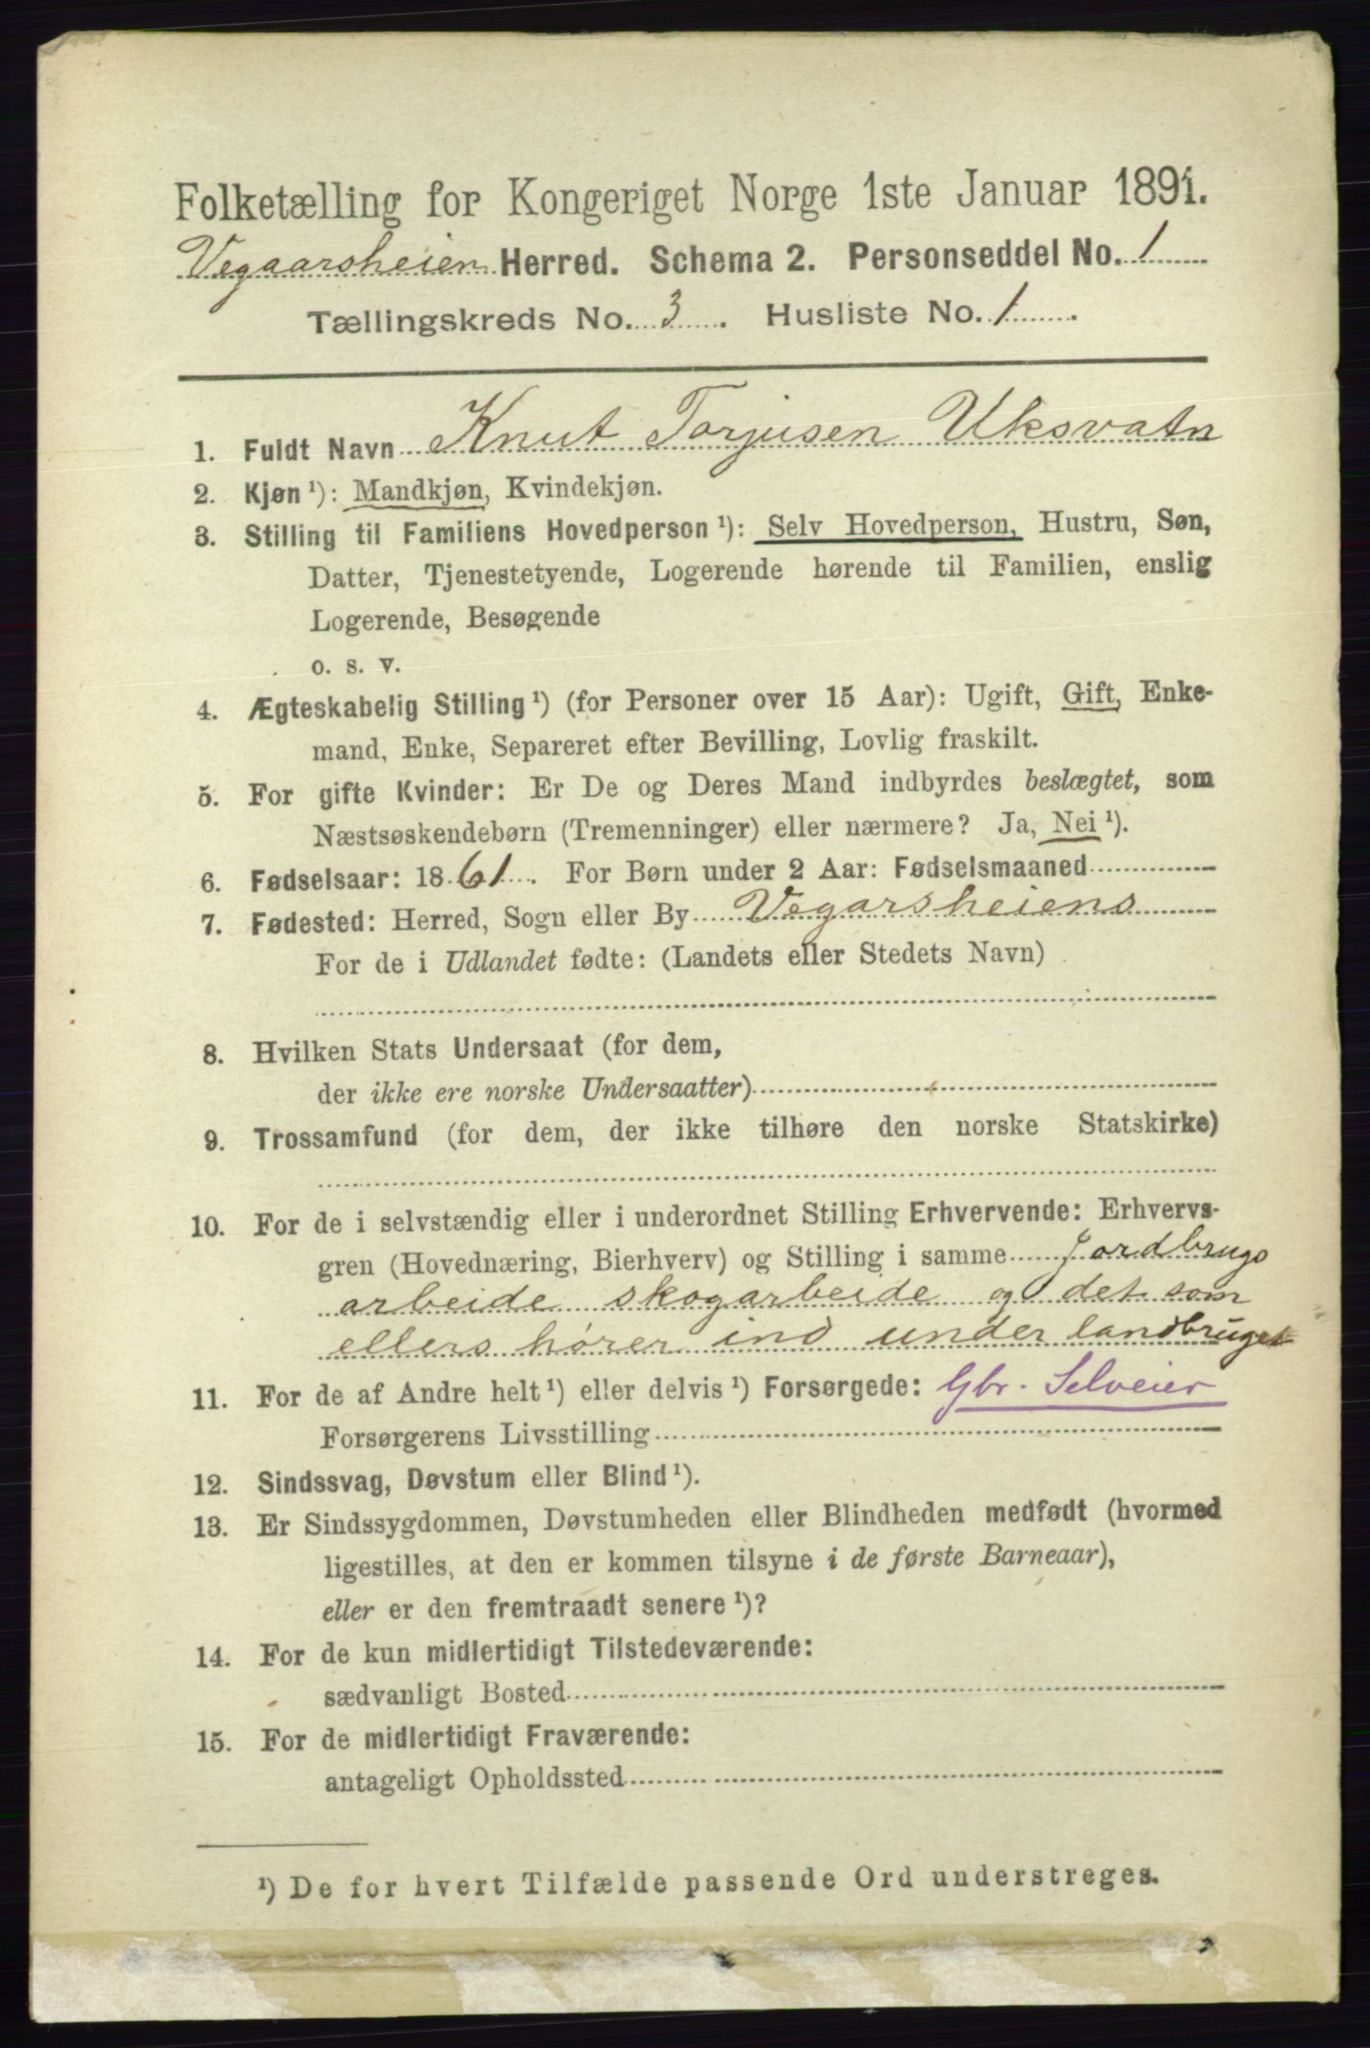 Folketælling for Kongeriget Norge 1ste Januar 1891.
Vegaarsheien Herred. Schema 2. Personseddel No. 1
Tællingskreds No. 3. Husliste No. 1.
1. Fuldt Navn Knut Torjusen Uksvatn
2. Kjøn ¹): Mandkjøn, Kvindekjøn.
3. Stilling til Familiens Hovedperson ¹): Selv Hovedperson, Hustru, Søn,
Datter, Tjenestetyende, Logerende hørende til Familien, enslig
Logerende, Besøgende
o. s. v.
4. Ægteskabelig Stilling ¹) (for Personer over 15 Aar): Ugift, Gift, Enke-
mand, Enke, Separeret efter Bevilling, Lovlig fraskilt.
5. For gifte Kvinder: Er De og Deres Mand indbyrdes beslægtet, som
Næstsøskendebørn (Tremenninger) eller nærmere? Ja, Nei ¹).
6. Fødselsaar: 1861. For Børn under 2 Aar: Fødselsmaaned
7. Fødested: Herred, Sogn eller By Vegarsheiens
For de i Udlandet fødte: (Landets eller Stedets Navn)
8. Hvilken Stats Undersaat (for dem,
der ikke ere norske Undersaatter)
9. Trossamfund (for dem, der ikke tilhøre den norske Statskirke)
10. For de i selvstændig eller i underordnet Stilling Erhvervende: Erhvervs-
gren (Hovednæring, Bierhverv) og Stilling i samme Jordbrugs
arbeide skogarbeide og det som
ellers hører ind under landbruget
11. For de af Andre helt ¹) eller delvis ¹) Forsørgede: Gbr. Selveier
Forsørgerens Livsstilling
12. Sindssvag, Døvstum eller Blind ¹).
13. Er Sindssygdommen, Døvstumheden eller Blindheden medfødt (hvormed
ligestilles, at den er kommen tilsyne i de første Barneaar),
eller er den fremtraadt senere ¹)?
14. For de kun midlertidigt Tilstedeværende:
sædvanligt Bosted
15. For de midlertidigt Fraværende:
antageligt Opholdssted
¹) De for hvert Tilfælde passende Ord understreges.